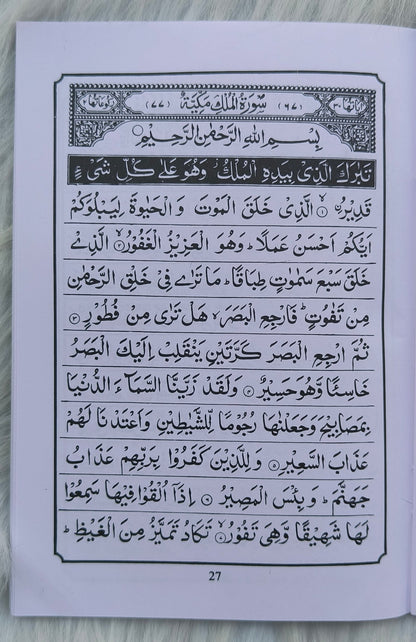 اٰيَاتُهَا ٣٠ (٦٧) سُوْرَةُ الْمُلْكِ مَكِّيَّةٌ (٧٧) رُكُوْعَاتُهَا ٢
بِسْمِ اللّٰهِ الرَّحْمٰنِ الرَّحِيْمِ ○
تَبٰرَكَ الَّذِيْ بِيَدِهِ الْمُلْكُ ز وَهُوَ عَلٰى كُلِّ شَيْءٍ
قَدِيْرُ ۨ ۝١ الَّذِيْ خَلَقَ الْمَوْتَ وَ الْحَيٰوةَ لِيَبْلُوَكُمْ
اَيُّكُمْ اَحْسَنُ عَمَلًا ؕ وَهُوَ الْعَزِيْزُ الْغَفُوْرُ ۝٢ الَّذِيْ
خَلَقَ سَبْعَ سَمٰوٰتٍ طِبَاقًا ؕ مَا تَرٰى فِيْ خَلْقِ الرَّحْمٰنِ
مِنْ تَفٰوُتٍ ؕ فَارْجِعِ الْبَصَرَ ۙ هَلْ تَرٰى مِنْ فُطُوْرٍ ۝٣
ثُمَّ ارْجِعِ الْبَصَرَ كَرَّتَيْنِ يَنْقَلِبْ اِلَيْكَ الْبَصَرُ
خَاسِئًا وَّهُوَ حَسِيْرٌ ۝٤ وَلَقَدْ زَيَّنَّا السَّمَآءَ الدُّنْيَا
بِمَصَابِيْحَ وَجَعَلْنٰهَا رُجُوْمًا لِّلشَّيٰطِيْنِ وَاَعْتَدْنَا لَهُمْ
عَذَابَ السَّعِيْرِ ۝٥ وَ لِلَّذِيْنَ كَفَرُوْا بِرَبِّهِمْ عَذَابُ
جَهَنَّمَ ؕ وَ بِئْسَ الْمَصِيْرُ ۝٦ اِذَآ اُلْقُوْا فِيْهَا سَمِعُوْا
لَهَا شَهِيْقًا وَّهِيَ تَفُوْرُ ۝٧ تَكَادُ تَمَيَّزُ مِنَ الْغَيْظِ ؕ
27